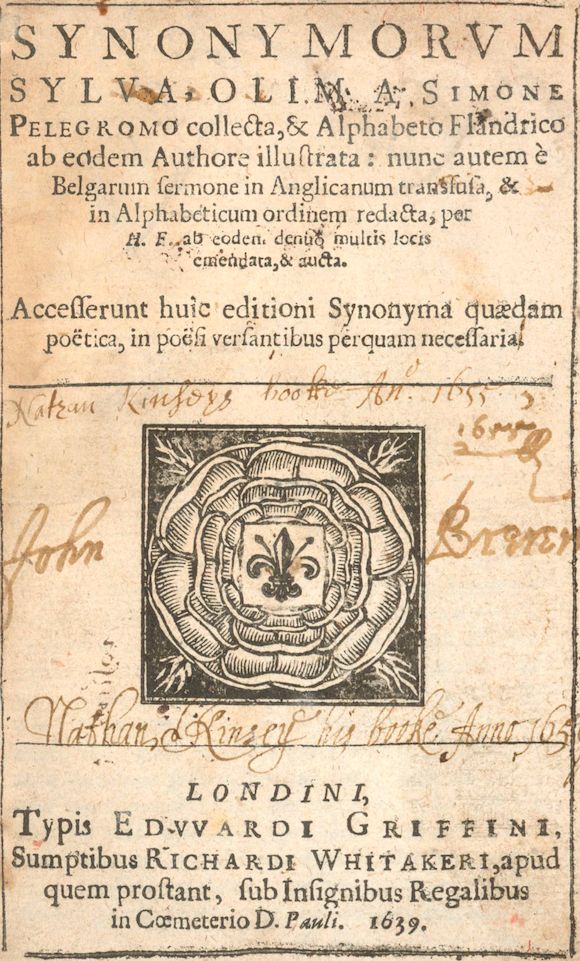 SYNONYMORVM
SYLVA, OLIM A SIMONE
PELEGROMO collecta, & Alphabeto Flandrico
ab eodem Authore illuſtrata: nunc autem è
Belgarum ſermone in Anglicanum transfuſa, &
in Alphabeticum ordinem redacta, per
H. F. ab eoden. denuò multis locis
emendata, & aucta.
Acceſſerunt huic editioni Synonyma quædam
poëtica, in poëſi verſantibus perquam neceſſaria.
Nathan Kinseys booke Ano. 1655
1655
John
Nathan Kinsey his booke Anno 165
LONDINI,
Typis EDVVARDI GRIFFINI,
Sumptibus RICHARDI WHITAKERI, apud
quem proſtant, ſub Inſignibus Regalibus
in Cœmeterio D. Pauli. 1639.